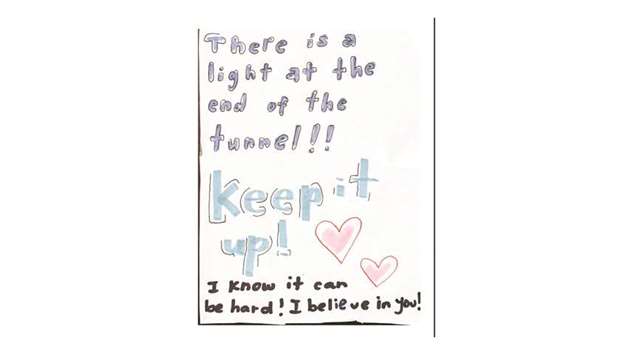 There is a
light at the
end of the
tunnel!!!
keep it
up!
I know it can
be hard! I believe in you!